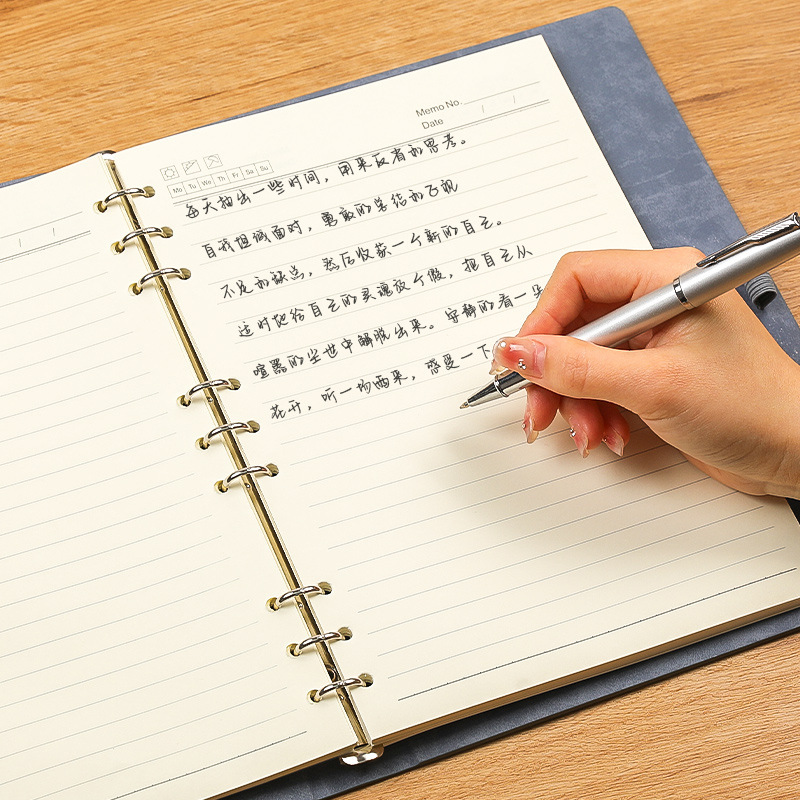 Memo No.
Date
Mo Tu We Th Fr Sa Su
每天抽出一些时间，用来反省和思考。
自我坦诚面对，勇敢的总结和
不足和缺点，然后收获一个新的自己。
适时地给自己的灵魂放个假，把自己从
喧嚣的尘世中解脱出来。安静的看一朵
花开，听一场雨来，感受一下